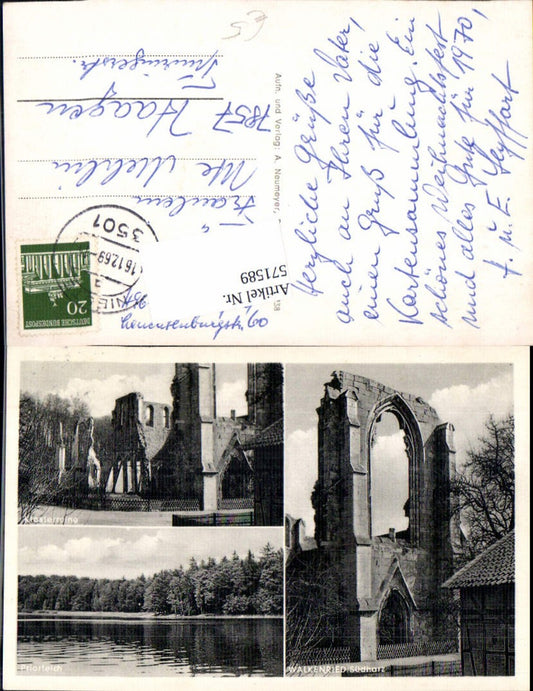 Herzliche Grüße
auch an Ihren Vater,
einen Gruß für die
Kartensammlung. Ein
schönes Weihnachtsfest
und alles Gute für 1970,
f. u. E. Seyffart
Aufn. und Verlag: A. Neumeyer,
Artikel Nr.
571589
3501
16.12.69
20
DEUTSCHE BUNDESPOST
Fräulein
Ute Mehlin
7857 Haagen
Thüringerstr.
Klosterruine
Priorteich
WALKENRIED Südharz